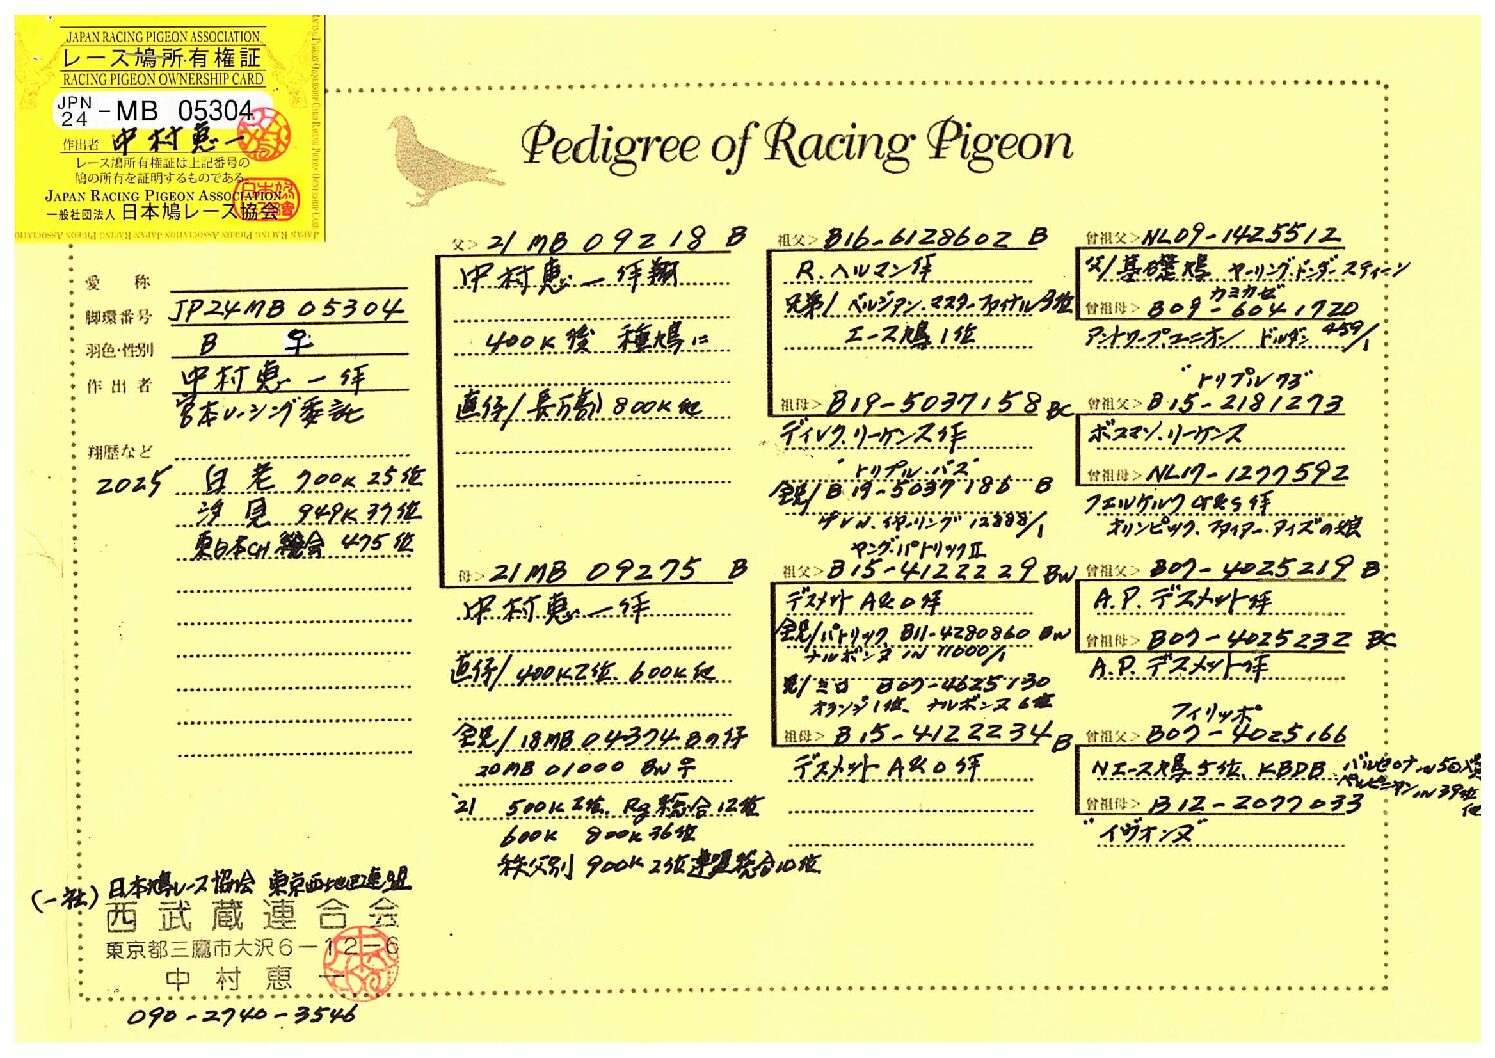 JAPAN RACING PIGEON ASSOCIATION
レース鳩所有権証
RACING PIGEON OWNERSHIP CARD
JPN 24 - MB 05304
作出者 中村恵一
レース鳩所有権証は上記番号の
鳩の所有を証明するものである。
JAPAN RACING PIGEON ASSOCIATION
一般社団法人 日本鳩レース協会
Pedigree of Racing Pigeon
愛 称
脚環番号 JP24MB 05304
羽色・性別 B ♀
作出者 中村恵一作
宮本レーシング委託
翔歴など
2025 白老 700K 25位
汐見 949K 37位
東日本CH 総合 475位
父> 21 MB 09218 B
中村恵一作翔
400K後 種鳩に
直仔/ 800K他
母> 21MB 09275 B
中村恵一作
直仔/ 400K2位 600K他
全兄/ 18MB 04374 Bの仔
20MB 01000 BW ♀
'21 500K 2位, Rg総合12位
600K 800K36位
秩父別 900K 2位連盟総合10位
祖父> B16-6128602 B
R.ヘルマン作
兄弟/ ベルジアン.マスターファイナル
エース鳩1位
祖母> B19-5037158 BC
ディルク.リーケンス作
"トリプル・バズ"
全兄/ B19-5037186 B
イヤーリング 12888/1
ヤング・パトリックⅡ
祖父> B15-4122229 BW
デスメット A&O作
全兄/パトリック B11-4280860 BW
ナルボンヌ IN 11000/1
兄/ミロ B07-4625130
オランジ1位、ナルボンヌ6位
祖母> B15-4122234 B
デスメット A&O作
曾祖父> NL09-1425512
父/基礎鳩 ヤーリング.ドンダースティーン
カミカゼ
曾祖母> B09-6041720
アントワープユニオン/ ドルダン 459/1
"トリプルワズ"
曾祖父> B15-2181273
ボスマン.リーケンス
曾祖母> NL17-1277592
フェルケルク G&S作
オリンピック.ファイター.アイズの娘
曾祖父> B07-4025219 B
A.P.デスメット作
曾祖母> B07-4025232 BC
A.P.デスメット作
フィリッポ
曾祖父> B07-4025166
Nエース鳩5位、KBDB バルセロナ IN 50位
ペルピニャン IN 39位
他
曾祖母> B12-2077033
"イヴォンヌ"
(一社)日本鳩レース協会 東京西地区連盟
西武蔵連合会
東京都三鷹市大沢6-12-6
中村恵一
090-2740-3546